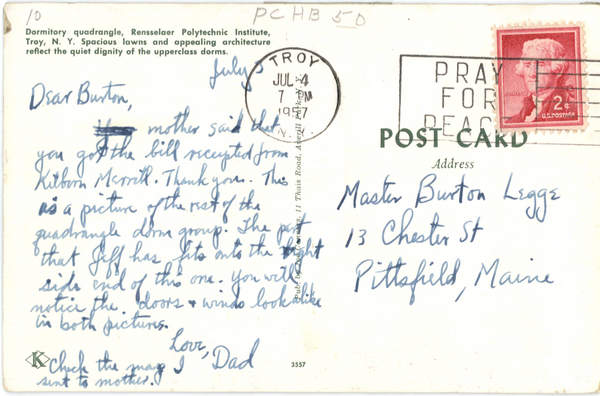 10
PCHB 50
Dormitory quadrangle, Rensselaer Polytechnic Institute,
Troy, N. Y. Spacious lawns and appealing architecture
reflect the quiet dignity of the upperclass dorms.
July 3
Dear Burton,
mother said that
you got the bill receipted from
Kilborn Merrill. Thank you. This
is a picture of the rest of the
quadrangle dorm group. The part
that Jeff has fits onto the right
side end of this one. You will
notice the doors & winds look alike
in both pictures.
Love,
Dad
K Check the map I
sent to mother.
TROY
JUL 4
7 PM
1957
N.Y.
PRAY
FOR
PEACE
2¢
U.S. POSTAGE
POST CARD
Address
Master Burton Legge
13 Chester St
Pittsfield, Maine
11 Thais Road, Averill Park, N. Y.
3557